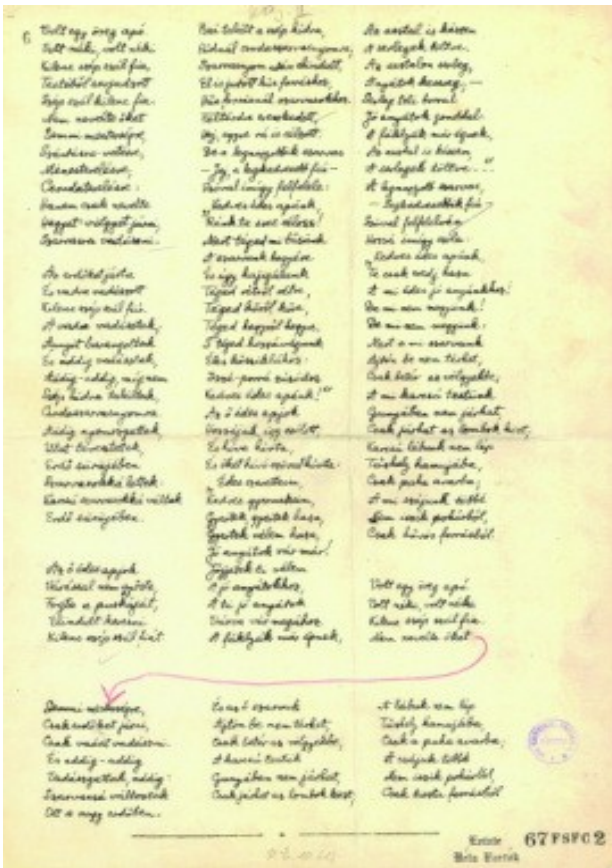 6
Volt egy öreg apó
Volt néki, volt néki
Kilenc szép szál fia.
Testéből sarjadzott
Szép szál kilenc fia.
Nem nevelte őket
Semmi mesterségre,
Szántásra-vetésre,
Ménesterelésre,
Csordaterelésre:
Hanem csak nevelte
Hegyet-völgyet járni,
Szarvasra vadászni.
Az erdőket járta
És vadra vadászott
Kilenc szép szál fiú.
A vadra vadásztak,
Annyit barangoltak
És addig vadásztak,
Addig-addig, míg nem
Szép hídra találtak,
Csodaszarvasnyomra.
Addig nyomozgattak,
Utat tévesztettek,
Erdő sűrűjében
Szarvasokká lettek:
Karcsú szarvasokká váltak
Erdő sűrűjében.
Az ő édes apjok
Várással nem győzte,
Fogta a puskáját,
Elindult keresni
Kilenc szép szál fiát
Reá talált a szép hídra,
Hídnál csodaszarvasnyomra,
Szarvasnyom után elindult,
El is jutott hűs forráshoz.
Hűs forrásnál szarvasokhoz.
Féltérdre ereszkedett,
Hej, egyre rá is célzott.
De a legnagyobbik szarvas
– Jaj, a legkedvesebb fiú –
Szóval imígy felfelele:
„Kedves édes apánk,
Reánk te sose célozz!
Mert téged mi tűzünk
A szarvunk hegyére
És úgy hajigálunk
Téged rétről rétre,
Téged kőről kőre,
Téged hegyről hegyre,
S téged hozzávágunk
Éles kősziklához:
Ízzé-porrá zúzódsz
Kedves édes apánk!"
Az ő édes apjok
Hozzájuk így szólott,
És híva hívta,
És őket hívó szóval hívta:
„Édes szeretteim,
Kedves gyermekeim,
Gyertek, gyertek haza,
Gyertek vélem haza,
Jó anyátok vár már!
Jöjjetek ti velem
A jó anyátokhoz,
A ti jó anyátok
Várva vár magához.
A fáklyák már égnek,
Az asztal is készen
A serlegek töltve.
Az asztalon serleg,
Anyátok kesereg, –
Serleg teli borral
Jó anyátok gonddal.
A fáklyák már égnek,
Az asztal is készen,
A serlegek töltve..."
A legnagyobb szarvas,
– Legkedvesebbik fiú –
Szóval felfelelvén
Hozzá imígy szóla:
„Kedves édes apánk,
Te csak eredj haza
A mi édes jó anyánkhoz!
De mi nem megyünk!
De mi nem megyünk:
Mert a mi szarvunk
Ajtón be nem térhet,
Csak betér az völgyekbe,
A mi karcsú testünk
Gunyában nem járhat,
Csak járhat az lombok közt,
Karcsú lábunk nem lép
Tűzhely hamujába,
Csak puha avarba;
A mi szájunk többé
Nem iszik pohárból,
Csak hűvös forrásból.
Volt egy öreg apó
Volt néki, volt néki
Kilenc szép szál fia.
Nem nevelte őket
Semmi mesterségre,
Csak erdőket járni,
Csak vadat vadászni.
És addig-addig
Vadászgattak, addig:
Szarvassá változtak
Ott a nagy erdőben.
És az ő szarvuk
Ajtón be nem térhet,
Csak betér az völgyekbe,
A karcsú testük
Gunyában nem járhat,
Csak járhat az lombok közt,
A lábuk nem lép
Tűzhely hamujába,
Csak a puha avarba;
A szájuk többé
Nem iszik pohárból,
Csak tiszta forrásból
Estate
Béla Bartók
67FSFC2